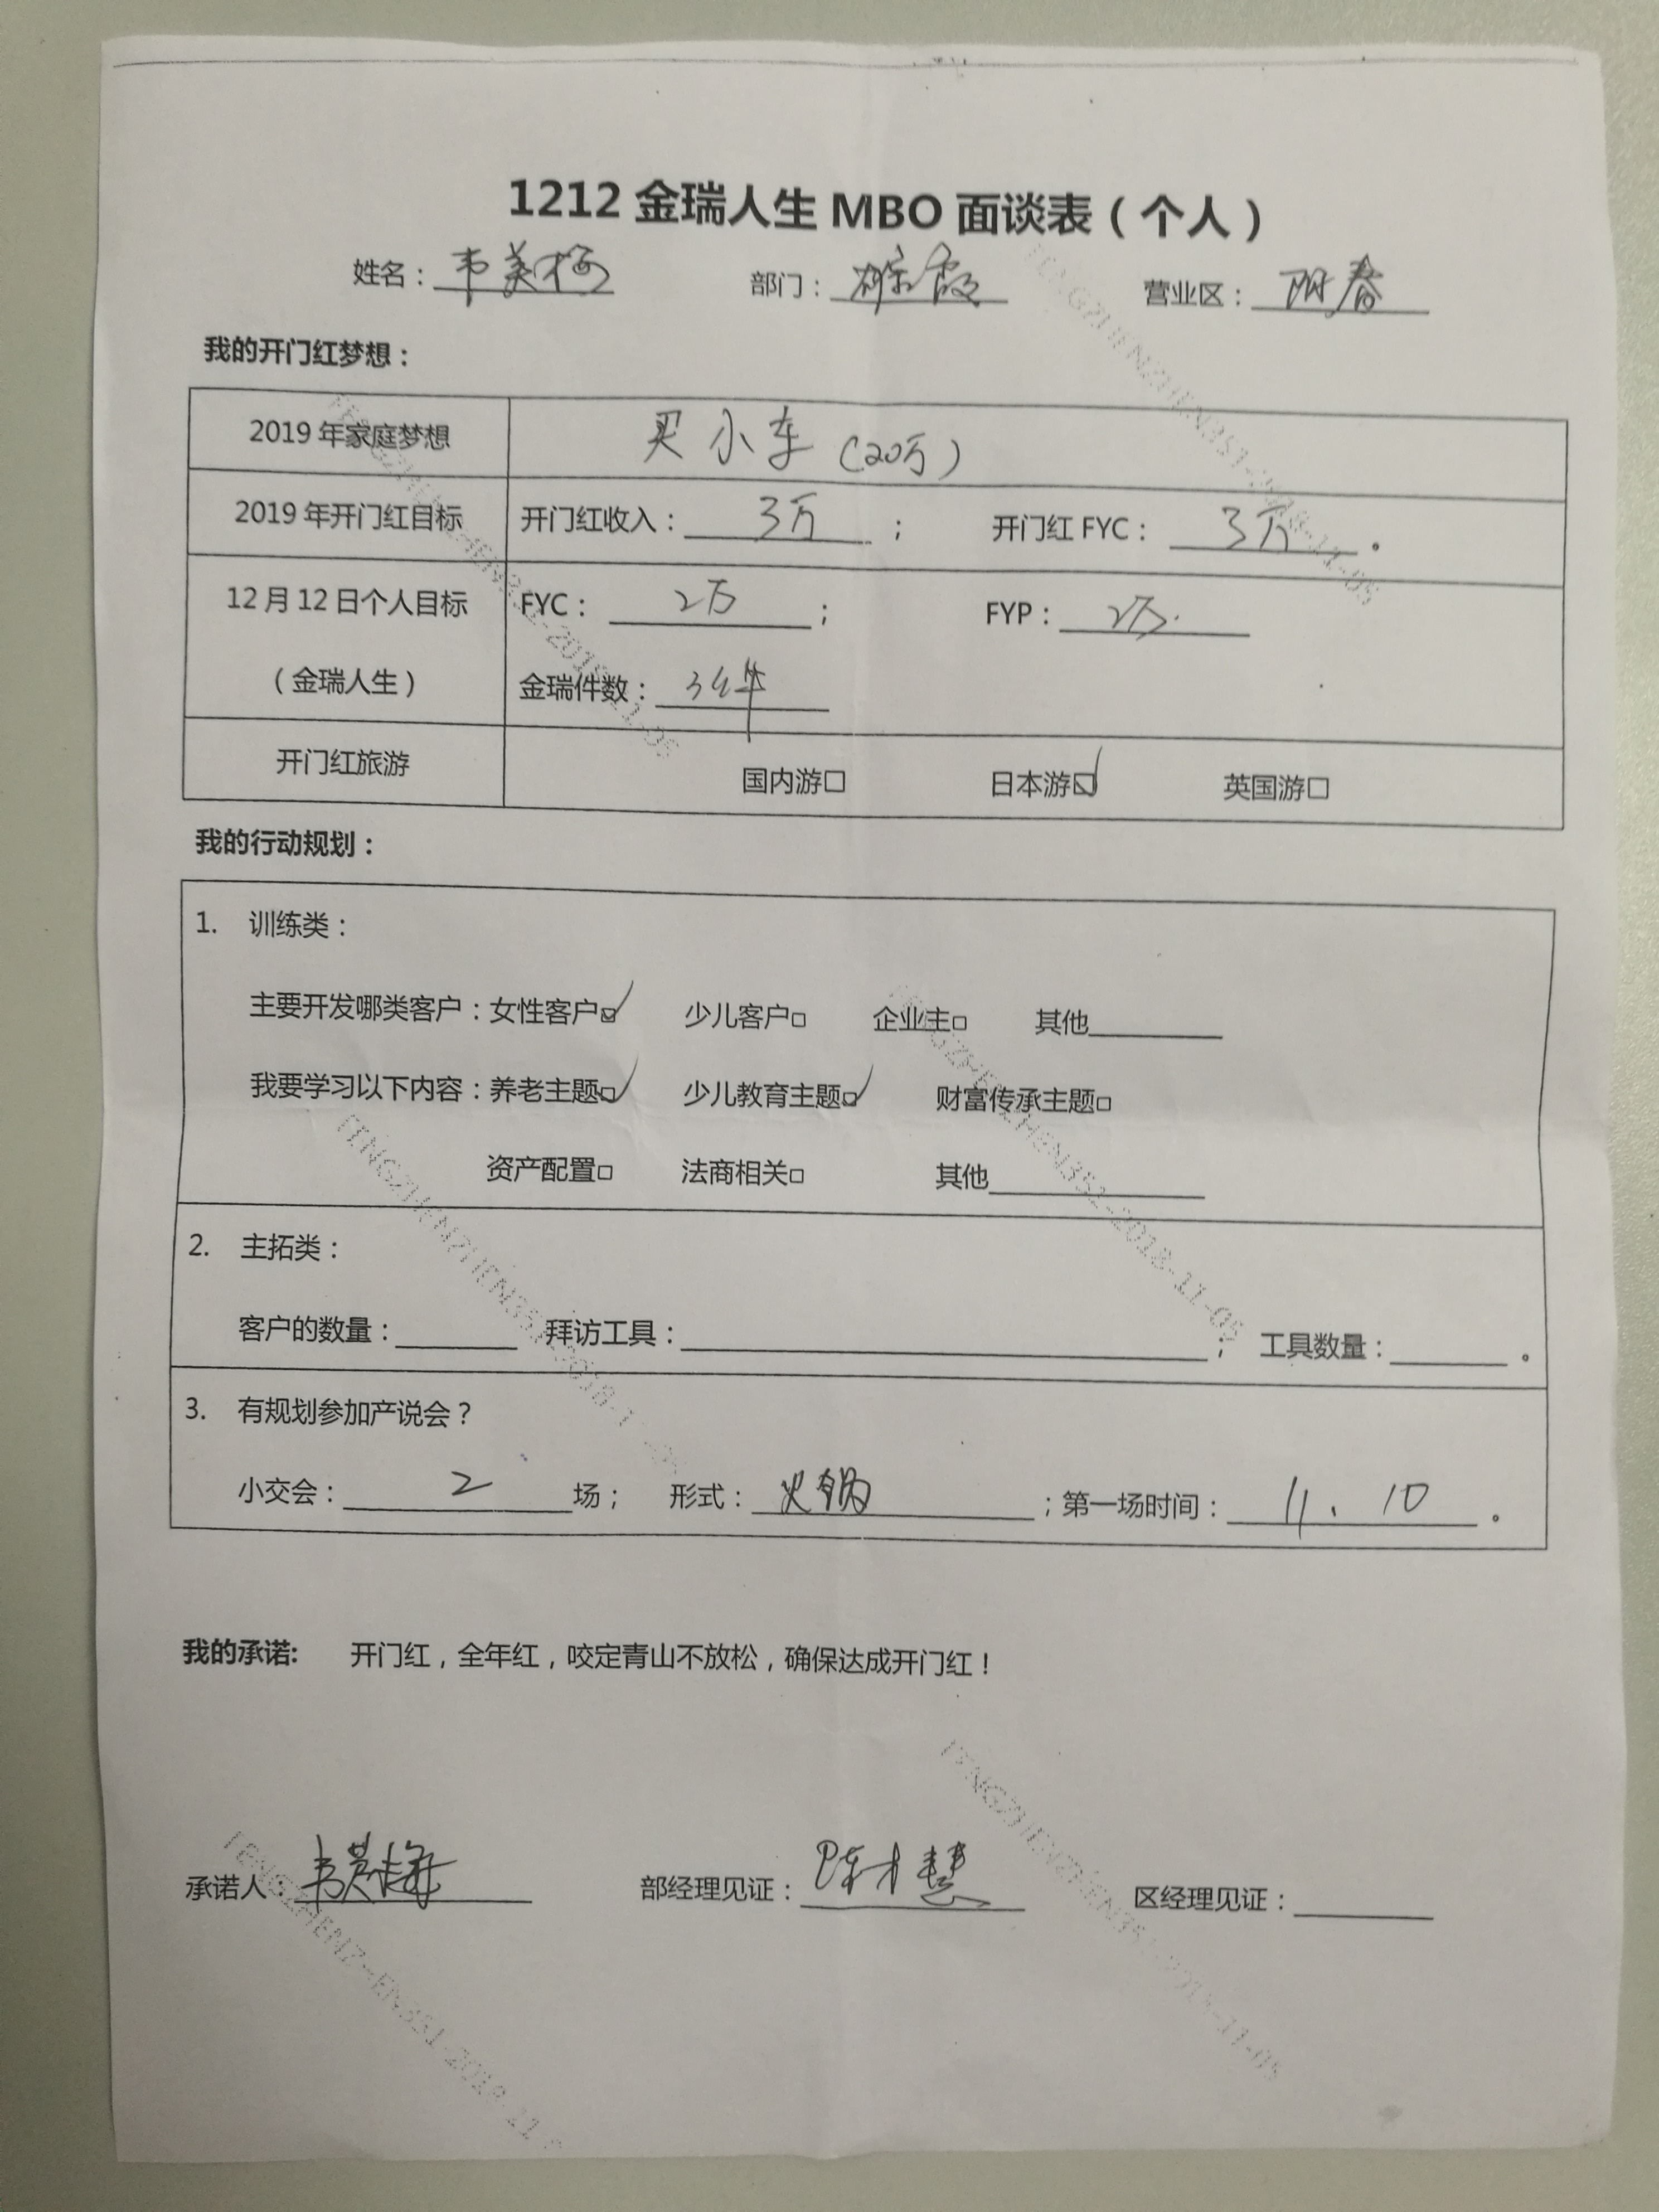 1212 金瑞人生 MBO 面谈表（个人）
姓名：韦美梅 部门： 营业区：阳春
我的开门红梦想：
2019 年家庭梦想 买小车（20万）
2019 年开门红目标 开门红收入：3万； 开门红 FYC：3万。
12 月 12 日个人目标 FYC：2万； FYP：2万.
（金瑞人生） 金瑞件数：3件
开门红旅游 国内游□ 日本游☑ 英国游□
我的行动规划：
1. 训练类：
主要开发哪类客户：女性客户☑ 少儿客户□ 企业主□ 其他
我要学习以下内容：养老主题☑ 少儿教育主题☑ 财富传承主题□
资产配置□ 法商相关□ 其他
2. 主拓类：
客户的数量： 拜访工具： ； 工具数量： 。
3. 有规划参加产说会？
小交会：2场； 形式：火锅；第一场时间：11.10。
我的承诺: 开门红，全年红，咬定青山不放松，确保达成开门红！
承诺人：韦美梅 部经理见证：陈才慧 区经理见证：